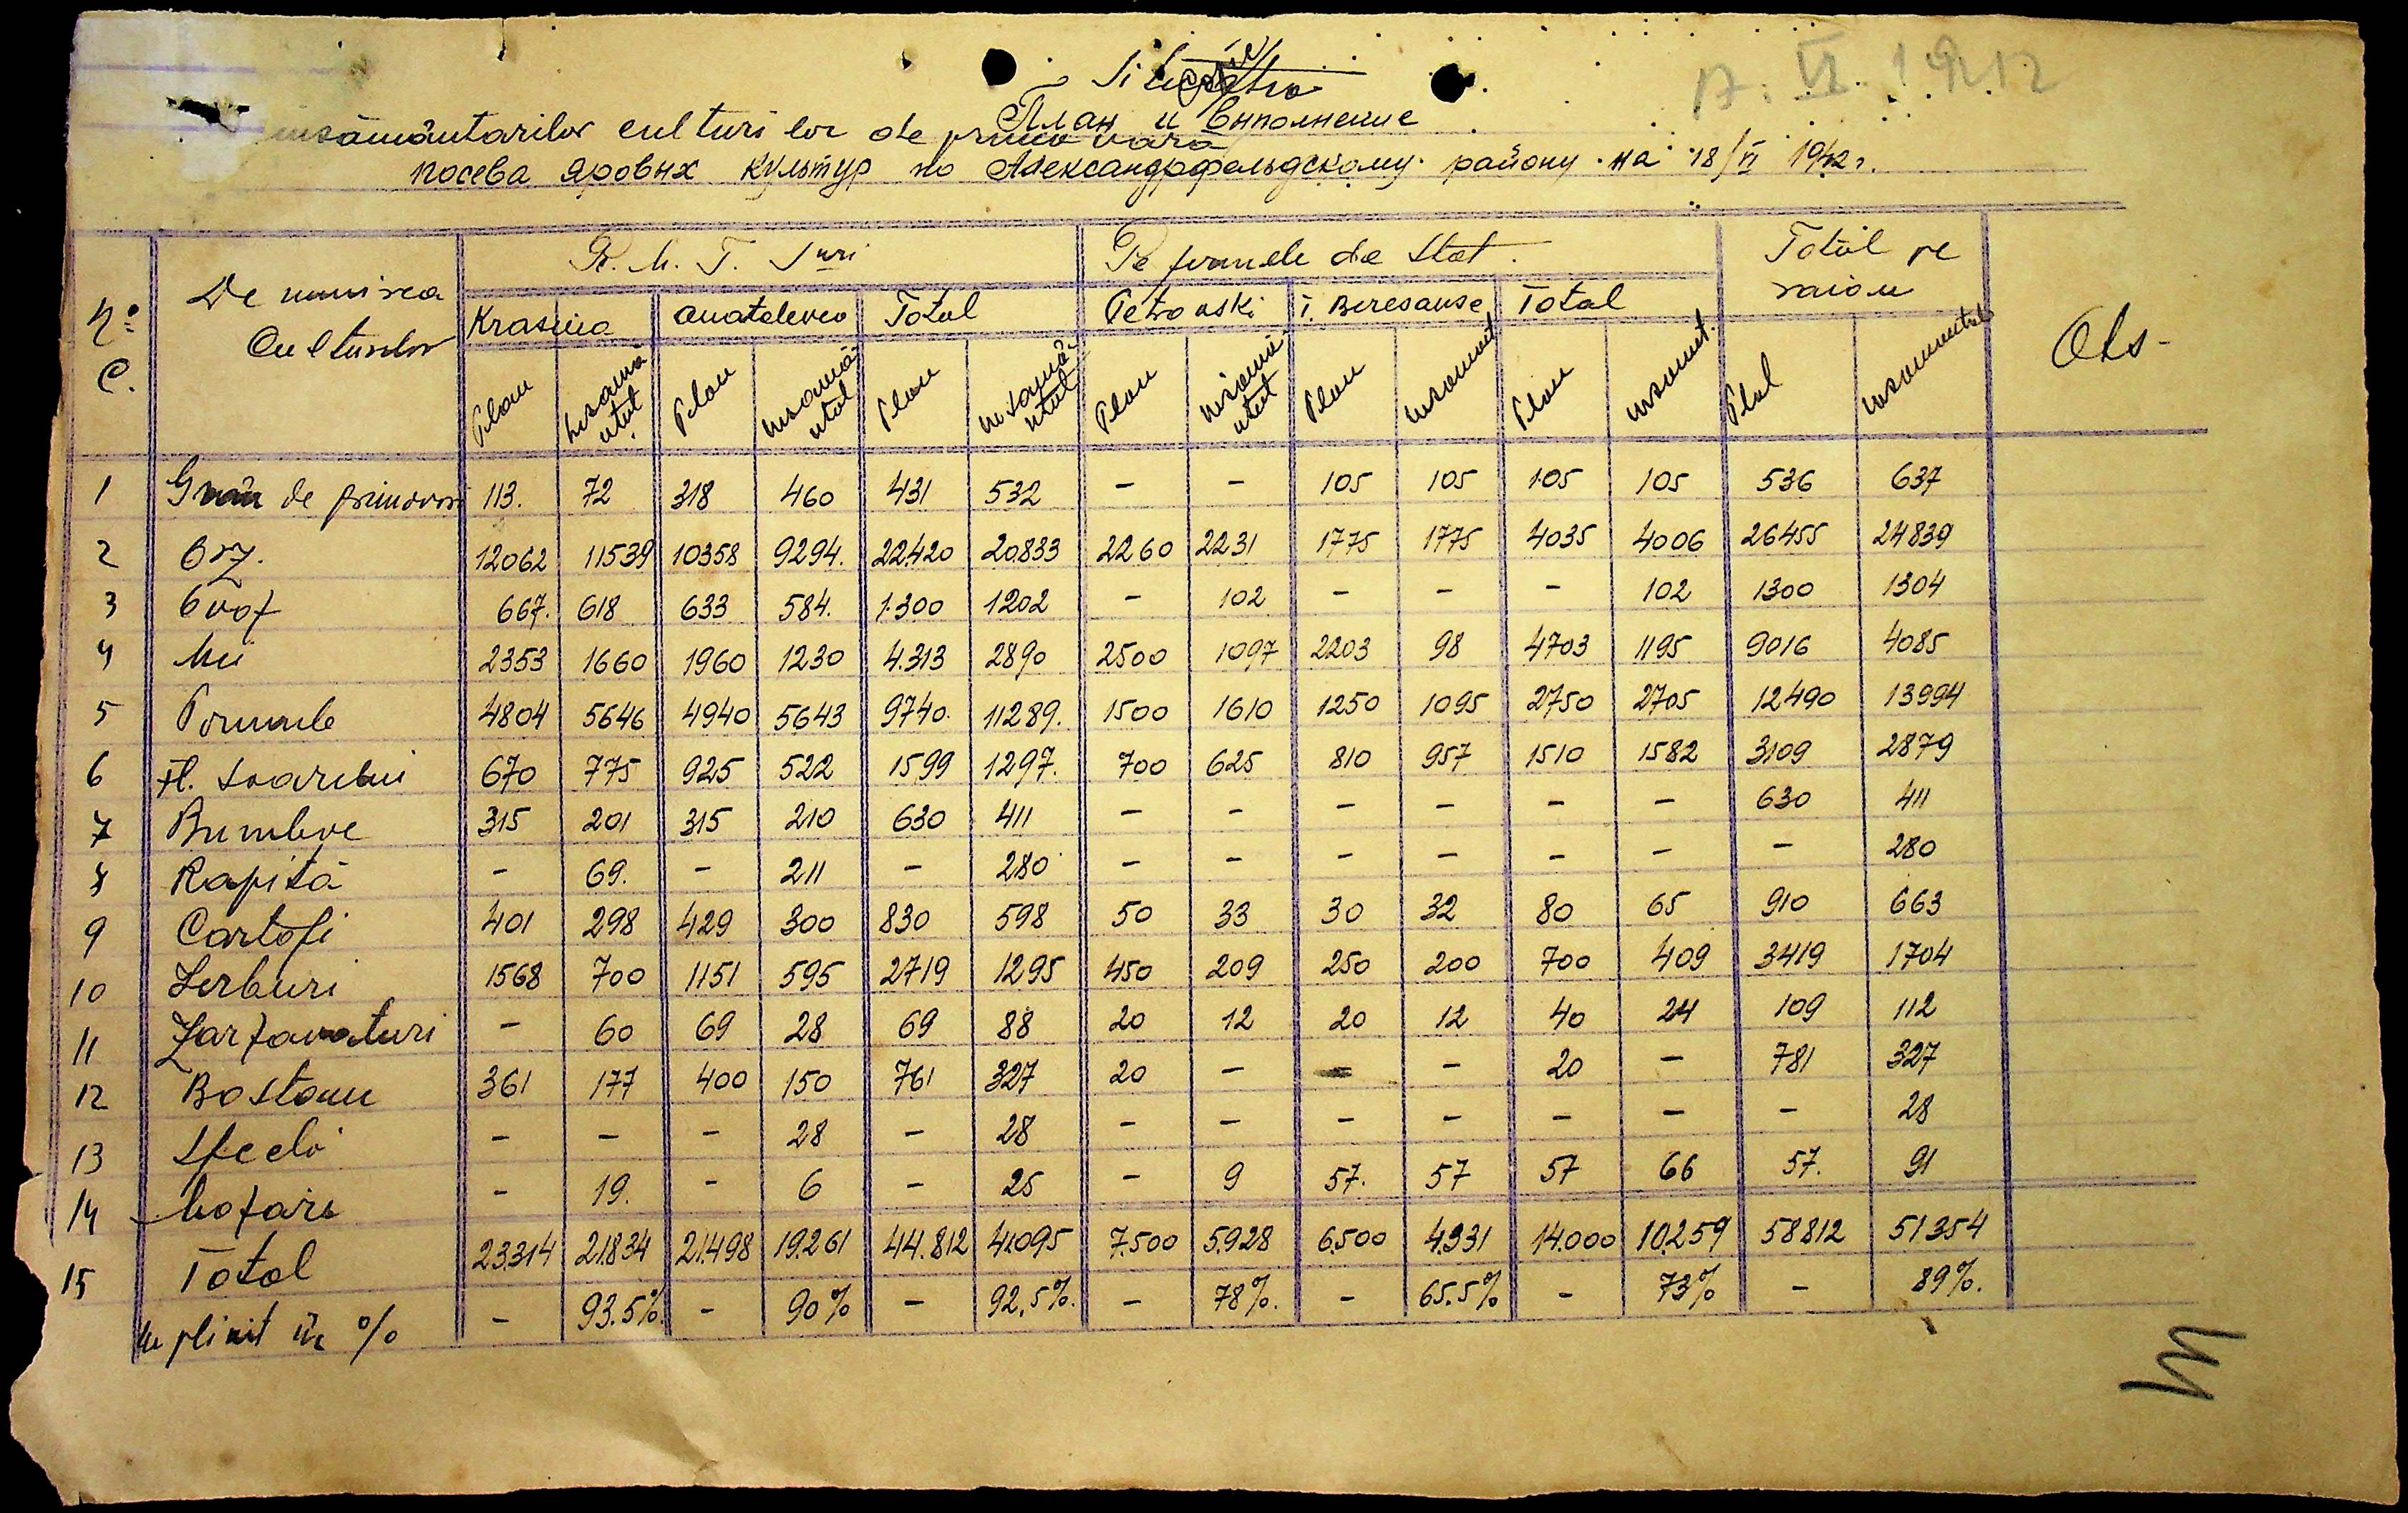 17. VI. 1942
План и Выполнение
însămânțarilor culturilor de primăvară
посева яровых культур по Александрфельдскому району на 18/VI 1942 г.
No C. Denumirea Culturilor R. M. T. Pe fermele de Stat. Totul pe raion Obs-
Krasnia Anatolevca Total Petrovski T. Beresanse Total
Plan însămânțat Plan însămânțat Plan însămânțat Plan însămânțat Plan însamânțat Plan însamânț. Plan însamânțat
1 Grâu de primovorа 113. 72 318 460 431 532 - - 105 105 105 105 536 637
2 Orz. 12062 11539 10358 9294. 22.420 20.833 2260 2231 1775 1775 4035 4006 26455 24839
3 Ovăz 667. 618 633 584. 1.300 1202 - 102 - - - 102 1300 1304
4 Mei 2353 1660 1960 1230 4.313 2890 2500 1097 2203 98 4703 1195 9016 4085
5 Porumb 4804 5646 4940 5643 9740. 11289. 1500 1610 1250 1095 2750 2705 12490 13994
6 Fl. Soarelui 670 775 925 522 1599 1297. 700 625 810 957 1510 1582 3109 2879
7 Bumbac 315 201 315 210 630 411 - - - - - - 630 411
8 Rapită - 69. - 211 - 280 - - - - - - - 280
9 Cartofi 401 298 429 300 830 598 50 33 30 32 80 65 910 663
10 Ierburi 1568 700 1151 595 2719 1295 450 209 250 200 700 409 3419 1704
11 Zarzavaturi - 60 69 28 69 88 20 12 20 12 40 24 109 112
12 Bostani 361 177 400 150 761 327 20 - - - 20 - 781 327
13 Sfeclă - - - 28 - 28 - - - - - - - 28
14 Mazăre - 19. - 6 - 25 - 9 57. 57 57 66 57. 91
15 Total 23.314 21.834 21.498 19.261 44.812 41.095 7.500 5.928 6.500 4.331 14.000 10.259 58812 51354
Implinit în % - 93.5% - 90% - 92,5%. - 78%. - 65.5% - 73% - 89%.